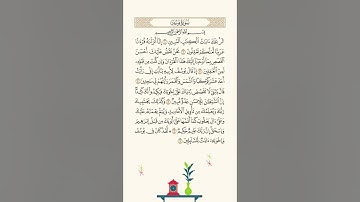 سُورَةُ يُوسُفَ
بِسْمِ اللَّهِ الرَّحْمَٰنِ الرَّحِيمِ
الٓر ۚ تِلْكَ ءَايَٰتُ ٱلْكِتَٰبِ ٱلْمُبِينِ ١ إِنَّآ أَنزَلْنَٰهُ قُرْءَٰنًا
عَرَبِيًّا لَّعَلَّكُمْ تَعْقِلُونَ ٢ نَحْنُ نَقُصُّ عَلَيْكَ أَحْسَنَ
ٱلْقَصَصِ بِمَآ أَوْحَيْنَآ إِلَيْكَ هَٰذَا ٱلْقُرْءَانَ وَإِن كُنتَ مِن قَبْلِهِۦ
لَمِنَ ٱلْغَٰفِلِينَ ٣ إِذْ قَالَ يُوسُفُ لِأَبِيهِ يَٰٓأَبَتِ إِنِّى رَأَيْتُ
أَحَدَ عَشَرَ كَوْكَبًا وَٱلشَّمْسَ وَٱلْقَمَرَ رَأَيْتُهُمْ لِى سَٰجِدِينَ ٤
قَالَ يَٰبُنَىَّ لَا تَقْصُصْ رُءْيَاكَ عَلَىٰٓ إِخْوَتِكَ فَيَكِيدُوا۟ لَكَ كَيْدًا
إِنَّ ٱلشَّيْطَٰنَ لِلْإِنسَٰنِ عَدُوٌّ مُّبِينٌ ٥ وَكَذَٰلِكَ يَجْتَبِيكَ
رَبُّكَ وَيُعَلِّمُكَ مِن تَأْوِيلِ ٱلْأَحَادِيثِ وَيُتِمُّ نِعْمَتَهُۥ عَلَيْكَ
وَعَلَىٰٓ ءَالِ يَعْقُوبَ كَمَآ أَتَمَّهَا عَلَىٰٓ أَبَوَيْكَ مِن قَبْلُ إِبْرَٰهِيمَ
وَإِسْحَٰقَ ۚ إِنَّ رَبَّكَ عَلِيمٌ حَكِيمٌ ٦ ۞ لَّقَدْ كَانَ فِى يُوسُفَ
وَإِخْوَتِهِۦٓ ءَايَٰتٌ لِّلسَّآئِلِينَ ٧